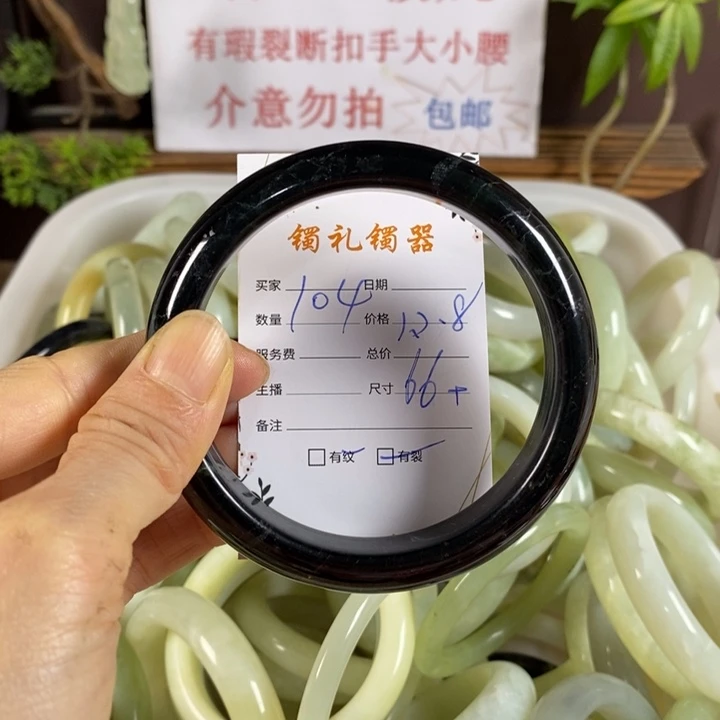 有瑕裂断扣手大小腰
介意勿拍 包邮
镯礼镯器
买家 104 日期
数量 价格 12.8
服务费 总价
主播 尺寸 66+
备注
有纹 有裂